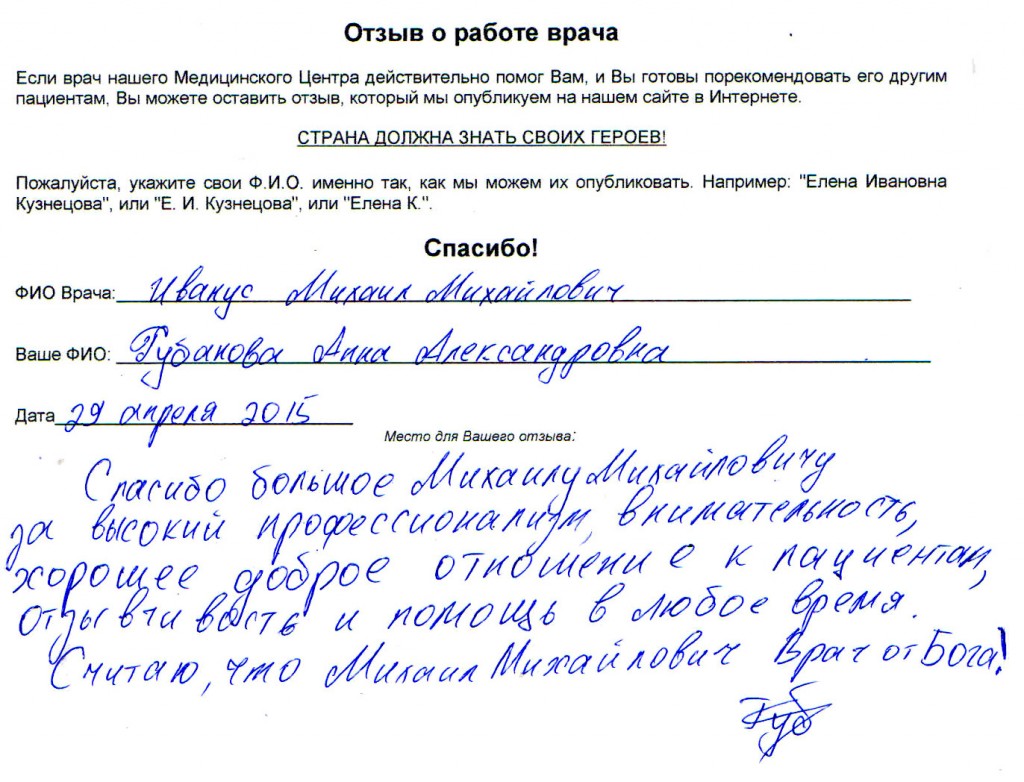 Отзыв о работе врача
Если врач нашего Медицинского Центра действительно помог Вам, и Вы готовы порекомендовать его другим
пациентам, Вы можете оставить отзыв, который мы опубликуем на нашем сайте в Интернете.
СТРАНА ДОЛЖНА ЗНАТЬ СВОИХ ГЕРОЕВ!
Пожалуйста, укажите свои Ф.И.О. именно так, как мы можем их опубликовать. Например: "Елена Ивановна
Кузнецова", или "Е. И. Кузнецова", или "Елена К.".
Спасибо!
ФИО Врача: Иванус Михаил Михайлович
Ваше ФИО: Губанова Анна Александровна
Дата 29 апреля 2015
Место для Вашего отзыва:
Спасибо большое Михаилу Михайловичу
за высокий профессионализм, внимательность,
хорошее доброе отношение к пациентам,
отзывчивость и помощь в любое время.
Считаю, что Михаил Михайлович Врач от Бога!
Губ